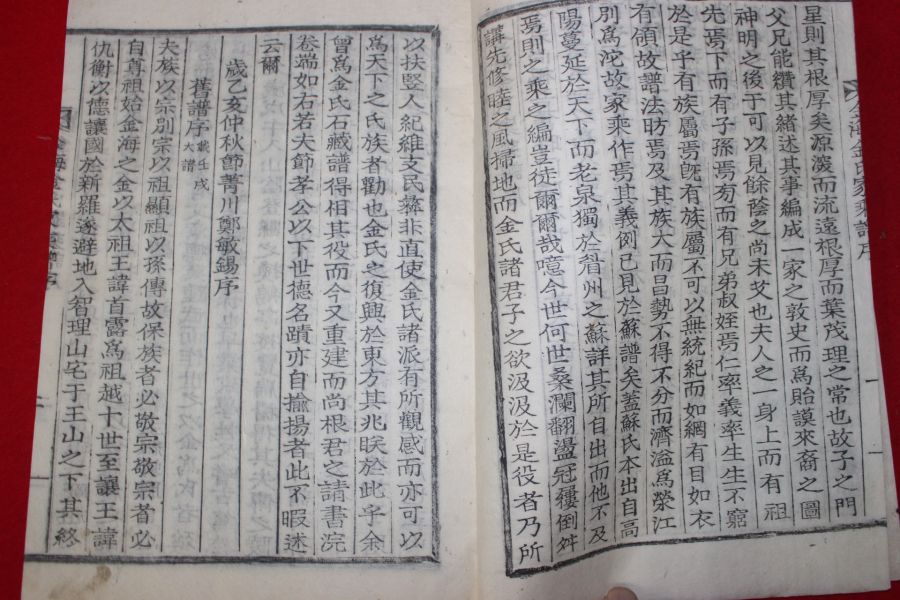 星則其根厚矣源深而流遠根厚而葉茂理之常也故子之門
父兄能纘其緖述其事編成一家之敦史而爲貽謨來裔之圖
神明之後于可以見餘蔭之尚未艾也夫人之一身上而有祖
先焉下而有子孫焉旁而有兄弟叔姪焉仁率義率生生不窮
於是乎有族屬焉旣有族屬不可以無統紀而如網有目如衣
有領故譜法昉焉及其族大而昌勢不得不分而濟溢爲滎江
別爲沱故家乘作焉其義例已見於蘇譜矣蓋蘇氏本出自高
陽蔓延於天下而老泉獨於眉州之蘇詳其所自出而他不及
焉則之乘之編豈徒爾爾哉噫今世何世桑瀾翻盪冠履倒舛
講先修睦之風掃地而金氏諸君子之欲汲汲於是役者乃所
以扶竪人紀維支民彝非直使金氏諸派有所觀感而亦可以
爲天下之氏族者勸也金氏之復興於東方其兆眹於此乎余
曾爲金氏石藏譜得相其役而今又重建而尚根君之請書浣
卷端如右若夫節孝公以下世德名蹟亦自揄揚者此不暇述
云爾
歲乙亥仲秋節菁川鄭敏錫序
舊譜序 歲壬戌大譜
夫族以宗別宗以祖顯祖以孫傳故保族者必敬宗敬宗者必
自尊祖始金海之金以太祖王諱首露爲祖越十世至讓王諱
仇衡以德讓國於新羅遂避地入智理山宅于王山之下其終